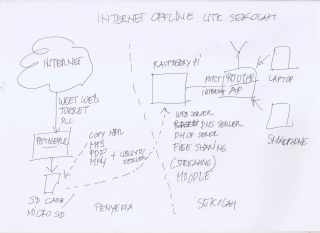 INTERNET OFFLINE UTK SEKOLAH
INTERNET
WGET WEB
TORRET
DLL
SD CARD
MICRO SD
COPY HTML
MP3
PDF
MP4
+ UBUNTU
PENYEDIA
RASPBERRY Pi
PORT
INTERNET
ROUTER
AP
LAPTOP
SMARPHONE
WEB SERVER
DNS SERVER
DHCP SERVER
FILE SHARING
(STREAMING)
MOODLE
SEKOLAH